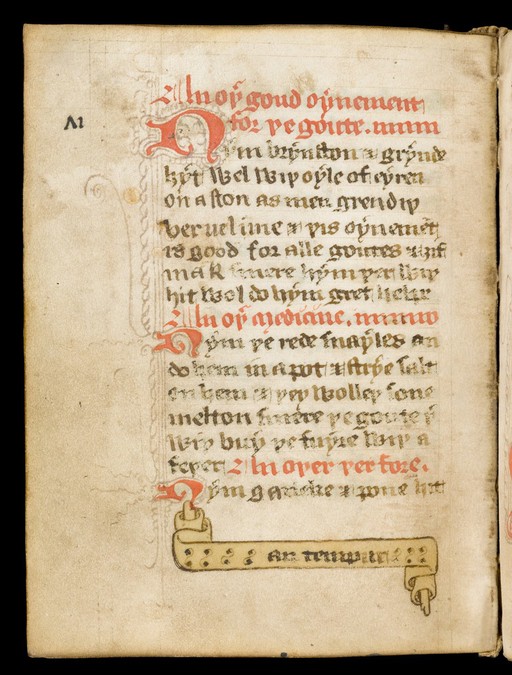 An oþ goud oynement
for þe goute. nnnn
Nym brynston & grynde
hyt wel wiþ oyle of eyren
on a ston as men grendiþ
vermelime & þis oynemēt
is good for alle goutes & ȝif
mak smere hym þer wiþ
hit wol do hym gret helpe
An oþ medicine.
Nym þe rede snayles an
do hem in a pot & strþe salt
on hem & þey wolleþ sone
melton smere þe goute þ
wiþ buȝ þe fuyre wiþ a
feþer An oþer þer fore.
Nym garleke & poune hit
an tempur